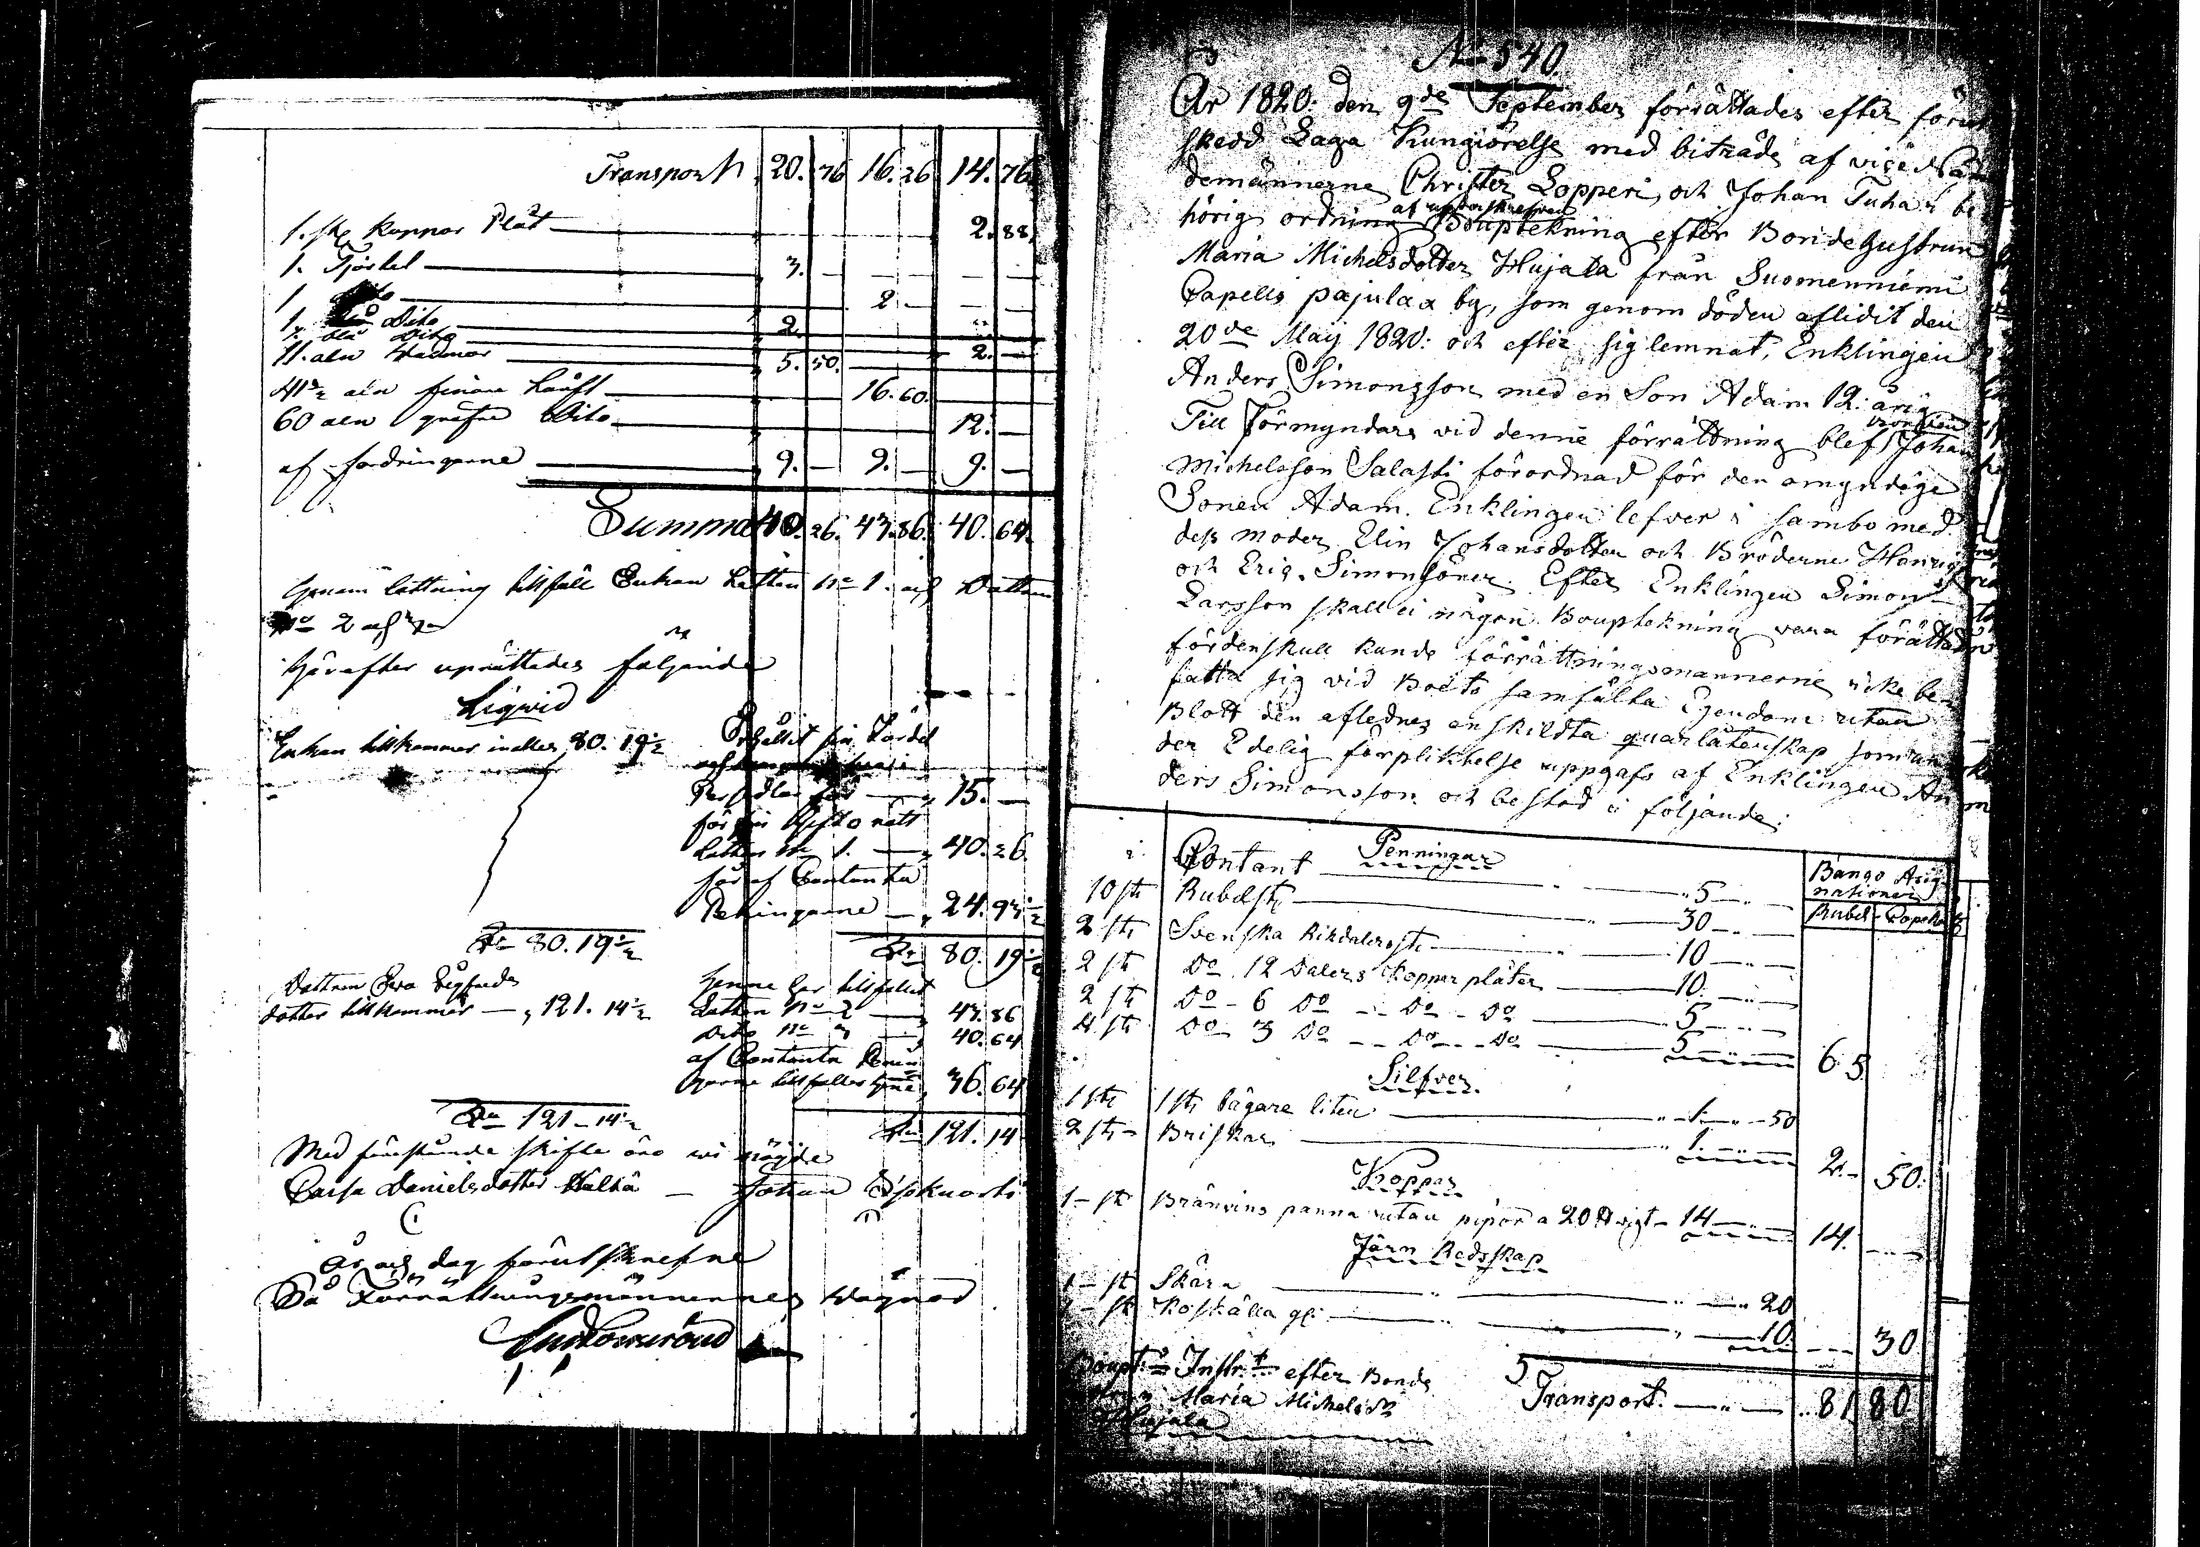 Transport 20. 76 16. 26 14. 76
1. st. koppar Plåt 2. 88
1. Tjortel 3. — — — — —
1 2 — — —
1. blå Dito 2.
11. aln Wadmar 5. 50. 2. —
41½ aln finare Lärft 16. 60.
60 aln gröfre Dito 12. —
af fordringarne 9. — 9. — 9. —
Summa 40. 26. 43. 86. 40. 64.
Genom lottning tillföll Enkan Lotten No 1. och Dottren
No 2 och 3
Härefter uprättades följande
Liqvid
Enkan tillkommer inalles 80. 19½ Erhållit sin Fördel
Persedlar för 15. —
för sin Giftorätt
Lotten No 1. — 40. 26
för af Contanta
Peningarne — 24. 93½
Rr 80. 19½ Rr 80. 19½
Dottren Eva Sigfreds
dotter tillkommer — 121. 14½
Henne har tillfallit
Lotten No 2 — 43. 86
Dito No 3 — 40. 64
af Contanta Penin
garne tillfaller henne 36. 64
Rr 121 - 14½ Rr 121. 14
Med förestående skifte äro wi nöjde
Caisa Danielsdotter — Johan
År och dag förutskrefne
På Förrättningsmännernes Wägnar
No 540.
År 1820. den 9de September förrättades efter förut
skedd Laga Kungiörelse med biträde af vice Näm
demännerne Christer Lopperi, och Johan Tuhan be
hörig ordning Bouptekning efter Bondehustrun
Maria Michelsdotter Hujala från Suomenniemi
Capells Pajulax by, som genom döden aflidit den
20de Maij 1820: och efter sig lemnat, Enklingen
Anders Simonsson med en Son Adam 12. årig
Till Förmyndare vid denne förrättning blef Johan
Michelsson Salasti förordnad för den omyndige
Sonen Adam. Enklingen lefver i sambo med
dess moder Elin Johansdotter och Bröderne Henric
och Eric Simonsöner. Efter Enklingen Simon
Larsson skall ei någon Bouptekning vara förättad
fördenskull kunde förrättningsmannerne icke be
fatta sig vid Boets samfälta Egendom utan
Blott den aflednes enskildta quarlåtenskap som un
der Edelig förpliktelse uppgafs af Enklingen An
ders Simonsson och bestod i följande:
Penningar Banco Assig
nationer
Contant 5 Rubel Copek
10 st Rubelst. 30
2 st. Svenska Rikdalerst. 10
2 st Do 12 Dalers kopper plåter 10.
2 st Do - 6 Do - Do - Do 5
4. st Do - 3 Do - Do - Do 5 65.
Silfver.
1 st. 1 st. bägare liten 1. — 50
2 st. Briskor 1. 2. — 50.
Koppar
1 - st Bränvins panna utan pipor a 20 ℔ vigt - 14 14.
Järn Redskap
1 - st Skära 20
1 - st Koskälla gl: 10. 30
Transport. 81 80
Boupt:s Instr:t efter Bonde
Maria Michelsdr
Hujala